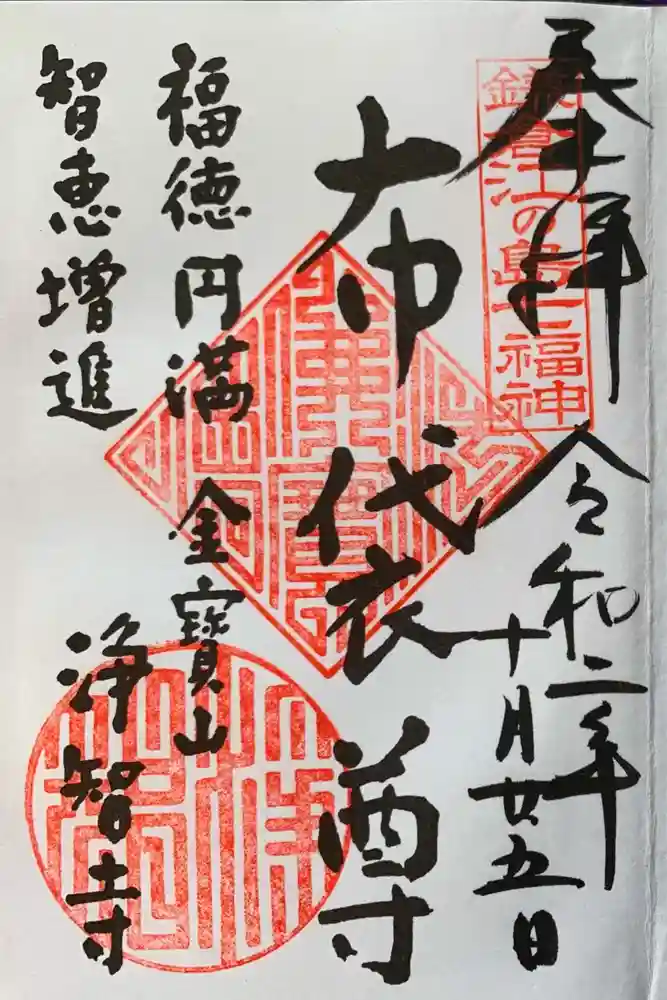 奉拝
鎌倉江の島七福神
令和二年
十月廿五日
布袋尊
福徳円満
金寶山
智恵増進
浄智寺